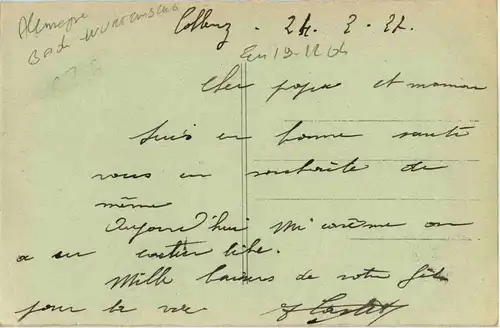 Allemagne
Bade-Wurtemberg
Coblenz, 24. 3. 22.
Cher papa et maman
Suis en bonne santé
vous en souhaite de
même
Aujourd'hui Mi carême on
a eu quartier libre.
Mille baisers de votre fils
pour la vie